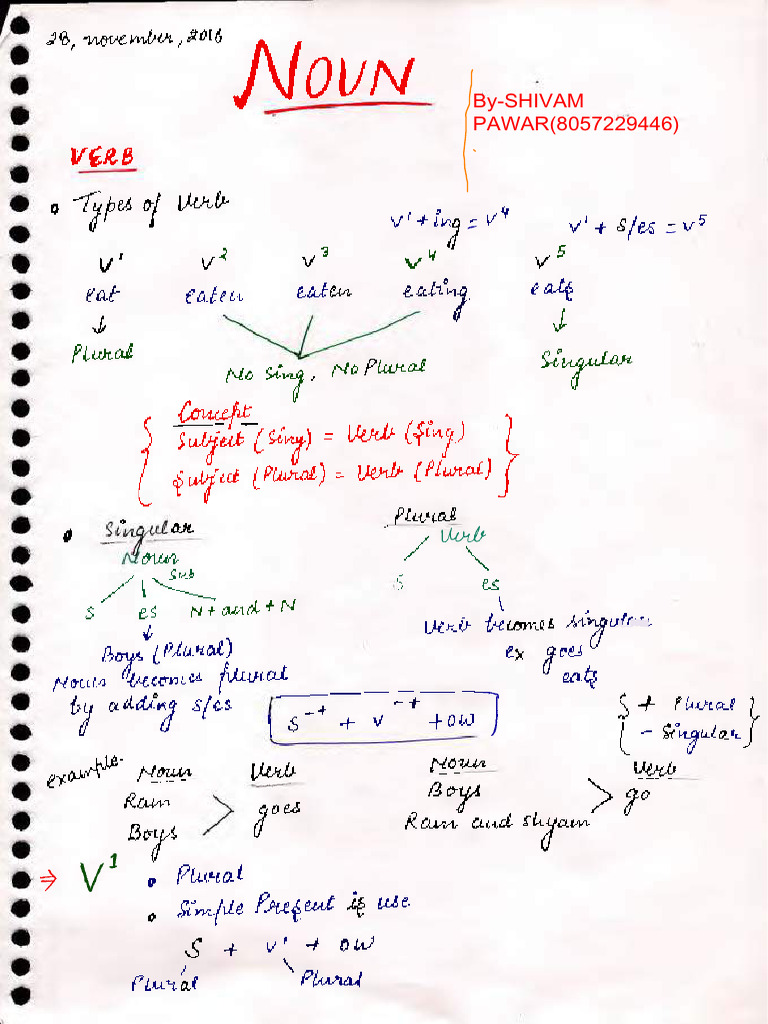 28, november, 2016
NOUN
By-SHIVAM
PAWAR(8057229446)
VERB
Types of Verb
V¹ + ing = V⁴
V¹ + s/es = V⁵
V¹ V² V³ V⁴ V⁵
eat eaten eaten eating eats
Plural
No Sing, No Plural
Singular
Concept
Subject (Sing) = Verb (Sing)
Subject (Plural) = Verb (Plural)
Singular
Plural
Noun
Verb
Sub
S es N + and + N
S es
Boys (Plural)
Nouns becomes plural
by adding s/es
Verb becomes singular
ex goes
eats
S⁻⁺ + V⁻⁺ + OW
+ Plural
- Singular
example.
Noun Verb
Noun Verb
Ram
Boys
goes
Boys
Ram and shyam
go
⇒ V¹
Plural
Simple Present is use
S + V¹ + OW
Plural Plural